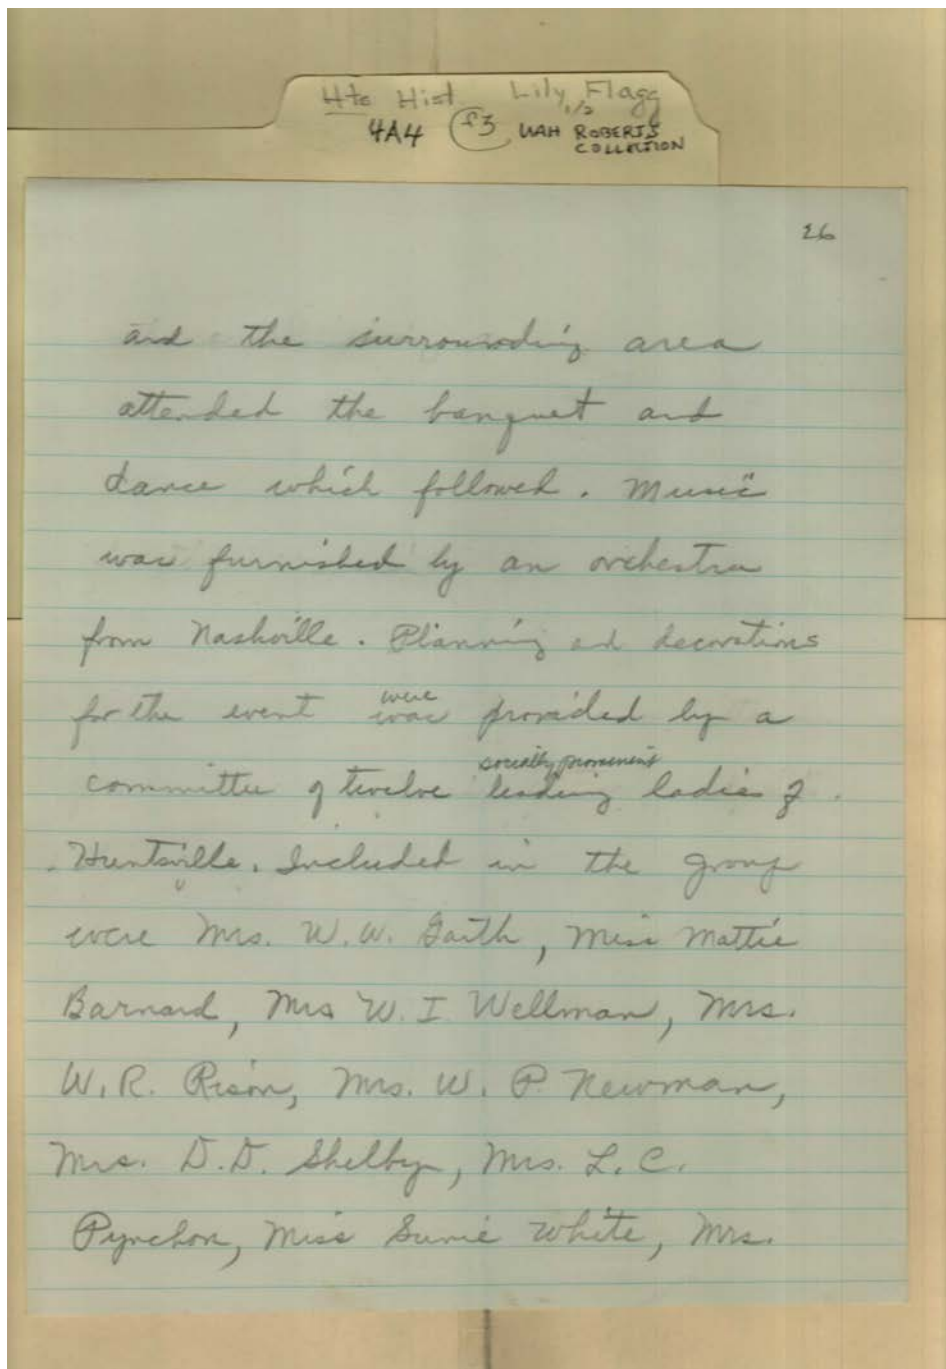 Hts Hist Lily Flagg
1/2
4A4 f3 UAH ROBERTS
COLLECTION
26
and the surrounding area
attended the banquet and
dance which followed. Music
was furnished by an orchestra
from Nashville. Planning and decorations
were
for the event was provided by a
socially prominent
committee of twelve leading ladies of
Huntsville. Included in the group
were Mrs. W. W. Garth, Miss Mattie
Barnard, Mrs W. I. Wellman, Mrs.
W. R. Rison, Mrs. W. P. Newman,
Mrs. D. D. Shelby, Mrs. L. C.
Pynchon, Miss Susie White, Mrs.